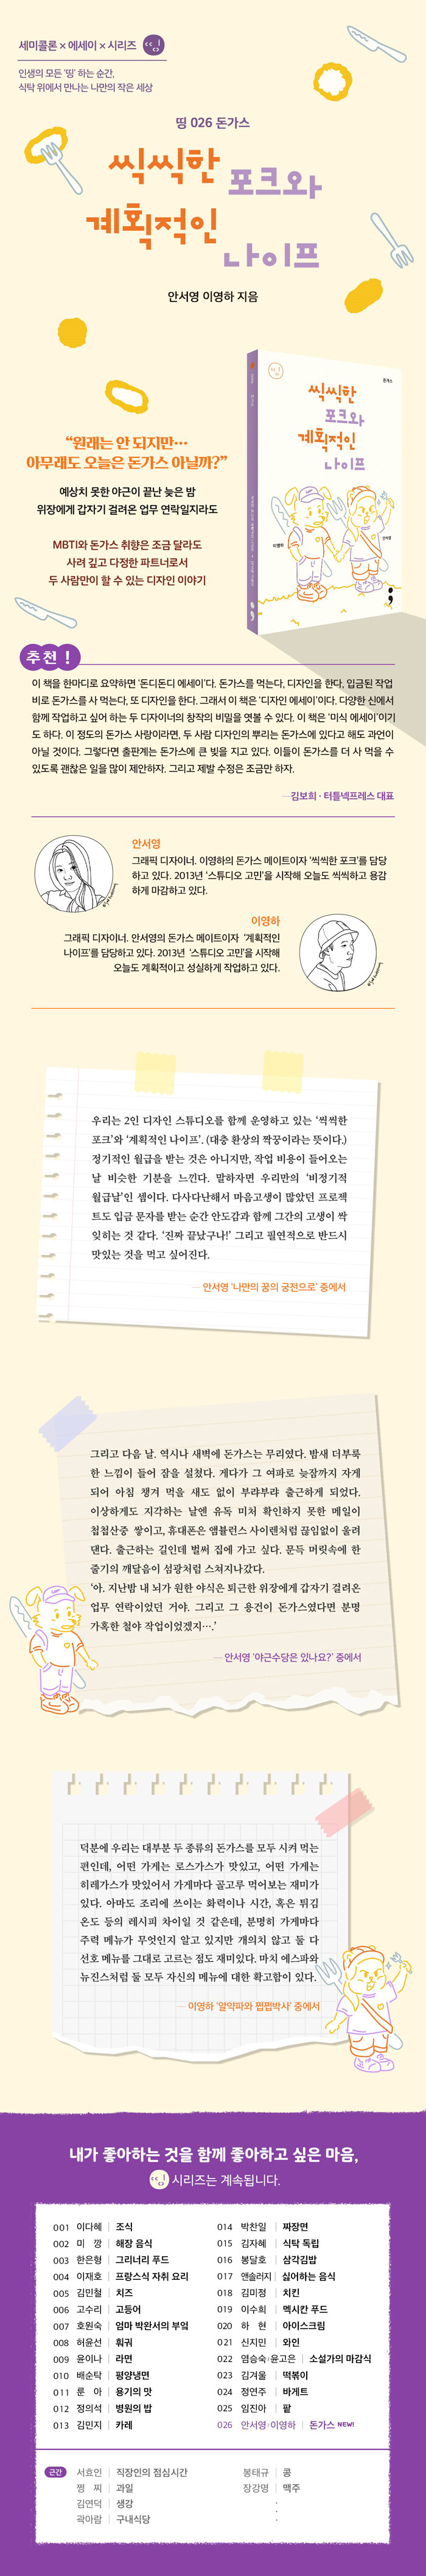 세미콜론 × 에세이 × 시리즈
인생의 모든 '띵' 하는 순간,
식탁 위에서 만나는 나만의 작은 세상
띵 026 돈가스
씩씩한 포크와
계획적인 나이프
안서영 이영하 지음
돈가스
씩씩한
포크와
계획적인
나이프
이영하
안서영
“원래는 안 되지만…
아무래도 오늘은 돈가스 아닐까?”
예상치 못한 야근이 끝난 늦은 밤
위장에게 갑자기 걸려온 업무 연락일지라도
MBTI와 돈가스 취향은 조금 달라도
사려 깊고 다정한 파트너로서
두 사람만이 할 수 있는 디자인 이야기
추천!
이 책을 한마디로 요약하면 '돈디돈디 에세이'다. 돈가스를 먹는다, 디자인을 한다, 입금된 작업
비로 돈가스를 사 먹는다, 또 디자인을 한다. 그래서 이 책은 '디자인 에세이'이다. 다양한 신에서
함께 작업하고 싶어 하는 두 디자이너의 창작의 비밀을 엿볼 수 있다. 이 책은 '미식 에세이'이기
도 하다. 이 정도의 돈가스 사랑이라면, 두 사람 디자인의 뿌리는 돈가스에 있다고 해도 과언이
아닐 것이다. 그렇다면 출판계는 돈가스에 큰 빚을 지고 있다. 이들이 돈가스를 더 사 먹을 수
있도록 괜찮은 일을 많이 제안하자. 그리고 제발 수정은 조금만 하자.
—김보희 · 터틀넥프레스 대표
안서영
그래픽 디자이너. 이영하의 돈가스 메이트이자 '씩씩한 포크'를 담당
하고 있다. 2013년 '스튜디오 고민'을 시작해 오늘도 씩씩하고 용감
하게 마감하고 있다.
이영하
그래픽 디자이너. 안서영의 돈가스 메이트이자 '계획적인
나이프'를 담당하고 있다. 2013년 '스튜디오 고민'을 시작해
오늘도 계획적이고 성실하게 작업하고 있다.
우리는 2인 디자인 스튜디오를 함께 운영하고 있는 '씩씩한
포크'와 '계획적인 나이프'. (대충 환상의 짝꿍이라는 뜻이다.)
정기적인 월급을 받는 것은 아니지만, 작업 비용이 들어오는
날 비슷한 기분을 느낀다. 말하자면 우리만의 '비정기적
월급날'인 셈이다. 다사다난해서 마음고생이 많았던 프로젝
트도 입금 문자를 받는 순간 안도감과 함께 그간의 고생이 싹
잊히는 것 같다. '진짜 끝났구나!' 그리고 필연적으로 반드시
맛있는 것을 먹고 싶어진다.
— 안서영 '나만의 꿈의 궁전으로' 중에서
그리고 다음 날. 역시나 새벽에 돈가스는 무리였다. 밤새 더부룩
한 느낌이 들어 잠을 설쳤다. 게다가 그 여파로 늦잠까지 자게
되어 아침 챙겨 먹을 새도 없이 부랴부랴 출근하게 되었다.
이상하게도 지각하는 날엔 유독 미처 확인하지 못한 메일이
첩첩산중 쌓이고, 휴대폰은 앰뷸런스 사이렌처럼 끊임없이 울려
댄다. 출근하는 길인데 벌써 집에 가고 싶다. 문득 머릿속에 한
줄기의 깨달음이 섬광처럼 스쳐지나갔다.
'아. 지난밤 내 뇌가 원한 야식은 퇴근한 위장에게 갑자기 걸려온
업무 연락이었던 거야. 그리고 그 용건이 돈가스였다면 분명
가혹한 철야 작업이었겠지….'
— 안서영 '야근수당은 있나요?' 중에서
덕분에 우리는 대부분 두 종류의 돈가스를 모두 시켜 먹는
편인데, 어떤 가게는 로스가스가 맛있고, 어떤 가게는
히레가스가 맛있어서 가게마다 골고루 먹어보는 재미가
있다. 아마도 조리에 쓰이는 화력이나 시간, 혹은 튀김
온도 등의 레시피 차이일 것 같은데, 분명히 가게마다
주력 메뉴가 무엇인지 알고 있지만 개의치 않고 둘 다
선호 메뉴를 그대로 고르는 점도 재미있다. 마치 에스파와
뉴진스처럼 둘 모두 자신의 메뉴에 대한 확고함이 있다.
— 이영하 '알약파와 쩝쩝박사' 중에서
내가 좋아하는 것을 함께 좋아하고 싶은 마음,
시리즈는 계속됩니다.
001 이다혜 | 조식
002 미 깡 | 해장 음식
003 한은형 | 그리너리 푸드
004 이재호 | 프랑스식 자취 요리
005 김민철 | 치즈
006 고수리 | 고등어
007 호원숙 | 엄마 박완서의 부엌
008 허윤선 | 훠궈
009 윤이나 | 라면
010 배순탁 | 평양냉면
011 룬 아 | 용기의 맛
012 정의석 | 병원의 밥
013 김민지 | 카레
014 박찬일 | 짜장면
015 김자혜 | 식탁 독립
016 봉달호 | 삼각김밥
017 앤솔러지 | 싫어하는 음식
018 김미정 | 치킨
019 이수희 | 멕시칸 푸드
020 하 현 | 아이스크림
021 신지민 | 와인
022 염승숙·윤고은 | 소설가의 마감식
023 김겨울 | 떡볶이
024 정연주 | 바게트
025 임진아 | 팥
026 안서영·이영하 | 돈가스 NEW!
근간
서효인 | 직장인의 점심시간
쩡 찌 | 과일
김연덕 | 생강
곽아람 | 구내식당
봉태규 | 콩
장강명 | 맥주